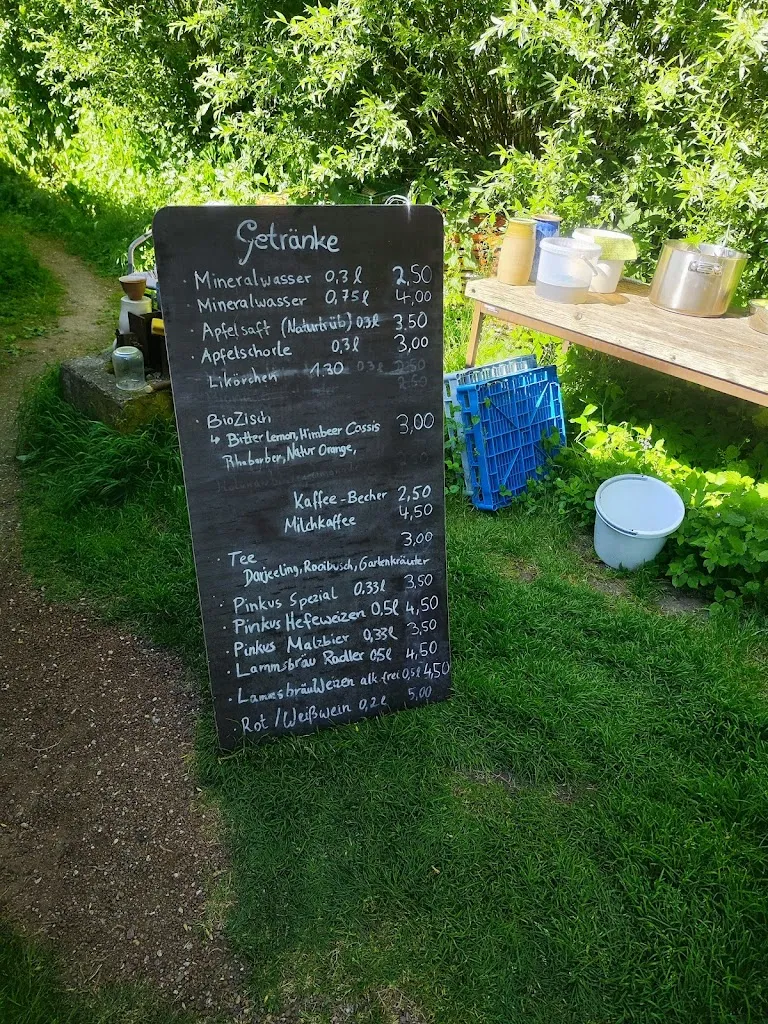 Getränke
· Mineralwasser 0,3 l 2,50
· Mineralwasser 0,75 l 4,00
· Apfelsaft (Naturtrüb) 0,3 l 3,50
· Apfelschorle 0,3 l 3,00
· Likörchen 1.30
· BioZisch 3,00
↳ Bitter Lemon, Himbeer Cassis
Rhabarber, Natur Orange,
Kaffee-Becher 2,50
Milchkaffee 4,50
· Tee 3,00
Darjeeling, Rooibusch, Gartenkräuter
· Pinkus Spezial 0,33l 3,50
· Pinkus Hefeweizen 0,5l 4,50
· Pinkus Malzbier 0,33l 3,50
· Lammsbräu Radler 0,5l 4,50
· LammsbräuWeizen alk. frei 0,5l 4,50
· Rot / Weißwein 0,2 l 5,00